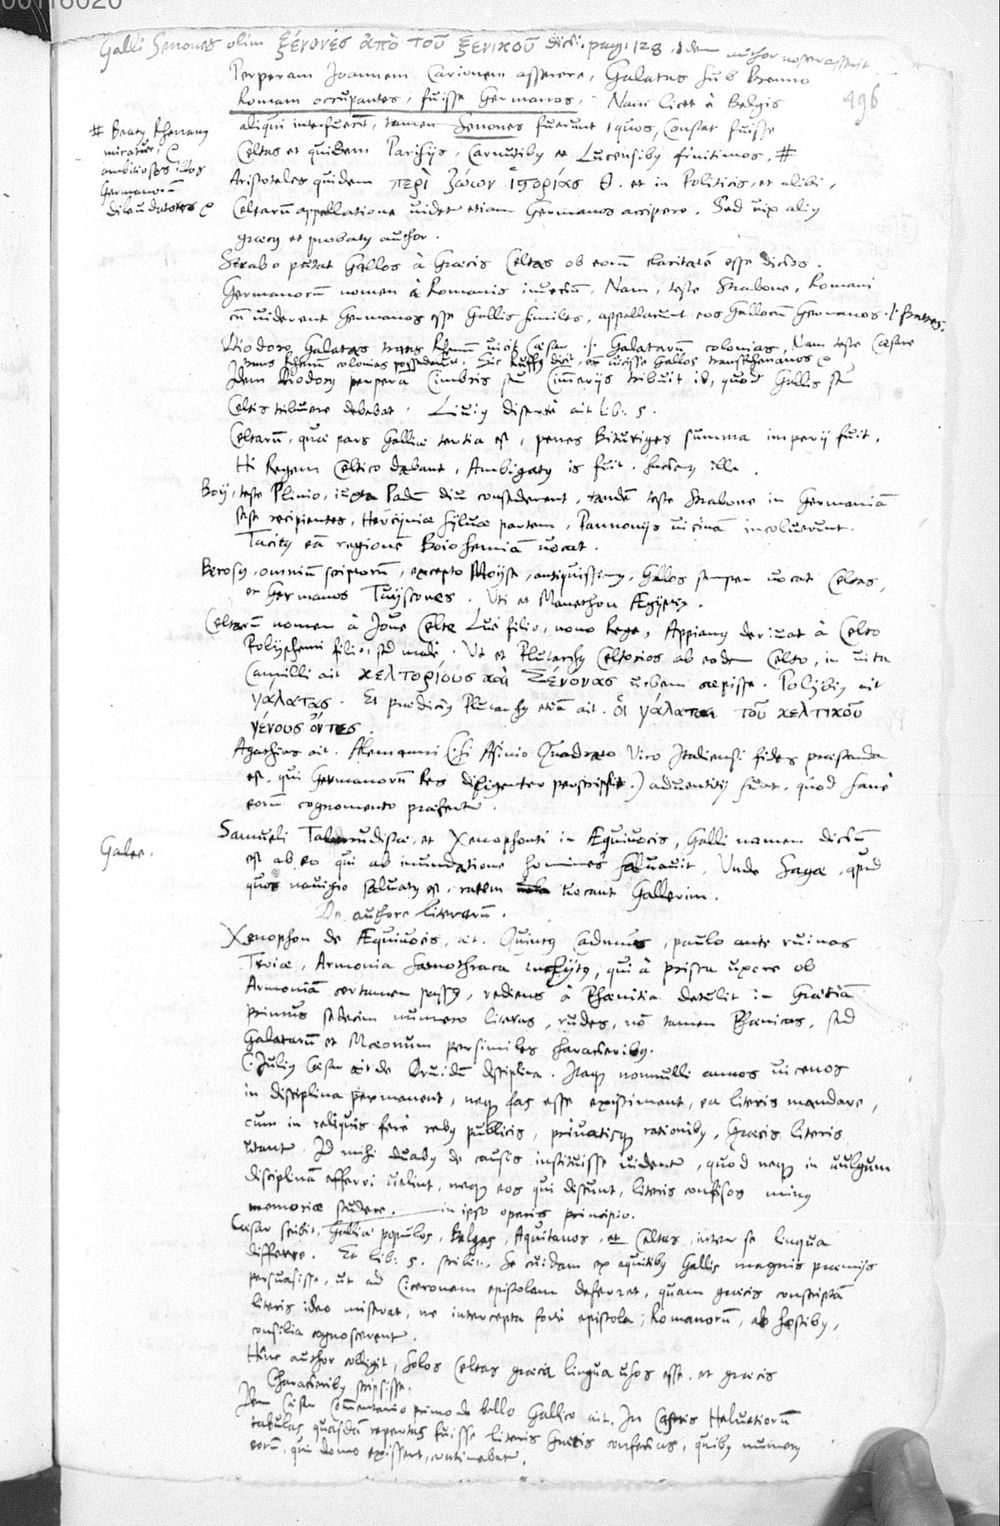 00116020
Galli Senones olim ξένονές ἀπὸ τοῦ ξενικοῦ dicti. pag. 128. Idem author noster asserit
Perperam Joannem Carionem asserere, Galatas sub Brenno
496
Romam occupantes, fuisse Germanos. Nam licet à Belgis
aliqui interfuerint, tamen Senones fuerunt, quos, constat fuisse
Celtas et quidem Parisijs, Carnutibus et finitimos, #
# Beatus Rhenanus
miratur
ambitiosos illos
Germanorum
Aristoteles quidem περὶ ζώων ἱστορίας θ. et in Politicis, et alibi,
Celtarum appellatione uidetur etiam Germanos accipere. Sed uix alius
graecus et probatus author.
Strabo putat Gallos à Graecis Celtas ob eorum claritatem esse dictos.
Germanorum nomen à Romanis inuectum, Nam, teste Strabone, Romani
cum uiderent Germanos esse Gallis similes, appellarunt eos Gallorum Germanos .i. fratres.
Diodorus Galatas trans Rhenum uicit Caesar .i. Galatarum colonias, Nam teste Caesare
trans Rhenum colonias possederunt. Sic Ruffus dicit, eum uicisse Gallos transrhenanos
Idem Diodorus perperam Cimbris seu Cimmerijs tribuit id, quod Gallis seu
Celtis tribuere debebat. Liuius disertè ait lib. 5.
Celtarum, quae pars Galliae tertia est, penes Bituriges summa imperij fuit,
Hi Regem Celtico dabant, Ambigatus is fuit. ille.
Boij, teste Plinio, iuxta Padum diu consederunt, tandem teste Strabone in Germaniam
sese recipientes, Hercyniae syluae partem, Pannonijs uicinam incoluerunt.
Tacitus eam regionem Boiohemiam uocat.
Berosus, omnium scriptorum, excepto Moyse, antiquissimus, Gallos semper uocat Celtas,
et Germanos Tuyscones. Uti et Manethon Aegyptius.
Celtarum nomen à Joue Celte Luci filio, nono Rege, Appianus deriuat à Celto
Polyphemi filio, sed malè. Ut et Plutarchus Celtorios ab eodem Celto, in uita
Camilli ait κελτορίους καὶ Ξένονας urbem cepisse. Polybius ait
γάλατας. Et praedictus Plutarchus etiam ait. ὁι γάλαται τοῦ κελτικοῦ
γένους ὄντες
Agathias ait. Alemanni (: si Asinio Quadrato Viro Italiensi fides praestanda
est, qui Germanorum Res diligenter perscripsit :) aduentitij sunt, quod sanè
eorum cognomento praefertur.
Galer.
Samueli Talmudistae, et Xenophonti in Aequiuocis, Galli nomen dictum
est ab eo qui ab inundatione homines saluauit, Unde Sagae, apud
quos nauigio saluatus est, ratem uocant Gallerim.
De authore literarum.
Xenophon de Aequiuocis, ait. Quintus Cadmus, paulo ante ruinas
Troiae, Armonia Samothraca inclytus, qui à prisca uxore ob
Armoniam certamen passus, rediens à Phoenitia detulit in Graeciam
primus sedecim numero literas, rudes, non tamen Phoenicas, sed
Galatarum et Maeonum persimiles characteribus.
C. Julius Caesar ait de Druidum disciplina. Itaque nonnulli annos uicenos
in disciplina permanent, neque fas esse existiment, ea literis mandare,
cum in reliquis ferè rebus publicis, priuatisque rationibus, Graecis literis
utantur. Id mihi duabus de causis instituisse uidentur, quod neque in uulgum
disciplinam efferri uelint, neque eos qui discunt, literis confisos minus
memoriae studere. in ipso operis principio.
Caesar scribit, Galliae populos, Belgas, Aquitanos, et Celtas, inter se lingua
differre. Et lib. 5. scribit. Se cuidam ex equitibus Gallis magnis praemijs
persuasisse, ut ad Ciceronem epistolam deferret, quam graecis conscriptam
literis ideo miserat, ne intercepta fortè epistola, Romanorum, ab hostibus,
consilia cognoscerent.
Hinc author colligit, solos Celtas graeca lingua usos esse, et graecis
characteribus scripsisse.
Idem Caesar Commentario primo de bello Gallico ait. In Castris Heluetiorum
tabulas quasdam repertas fuisse literis Graecis confectas, quibus numerus
eorum, qui domo exissent, continebatur.